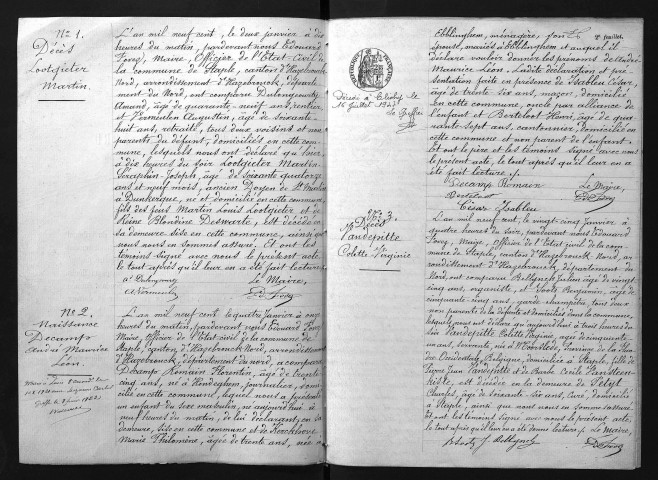 No 1.
Décès
Lootgieter
Martin.
L'an mil neuf cent, le deux janvier à dix
heures du matin, pardevant nous Edouard
Maire, Officier de l'Etat-Civil de
la commune de Staple, canton d'Hazebrouck
Nord, arrondissement d'Hazebrouck, départe-
ment du Nord, ont comparu
Amand, âgé de quarante-neuf ans, rentier
et Vermeulen Augustin, âgé de soixante-
huit ans, retraité, tous deux voisins et non
parents du défunt, domiciliés en cette com-
mune, lesquels nous ont déclaré qu'hier
à dix heures du soir Lootgieter Martin-
Séraphin-Joseph, âgé de soixante quatorze
ans et neuf mois, ancien Doyen de St Martin
à Dunkerque, né et domicilié en cette commune,
fils des feus Martin Louis Lootgieter et de
Reine Blondine Deswarte, est décédé en
sa demeure sise en cette commune, ainsi que
nous nous en sommes assuré. Et ont les
témoins signé avec nous le présent acte,
le tout après qu'il leur en a été fait lecture.
Le Maire,
No 2.
Naissance
Decamp
André Maurice
Léon.
L'an mil neuf cent le quatre Janvier à onze
heures du matin, pardevant nous Edouard
Maire, Officier de l'Etat civil de la commune de
Staple, canton d'Hazebrouck-Nord, arrondissement
d'Hazebrouck, département du nord, a comparu
Decamp Romain Florentin, âgé de trente
cinq ans, né à Hondeghem, journalier, domi-
cilié en cette commune, lequel nous a présenté
un enfant du sexe masculin, né aujourd'hui à
neuf heures du matin, de lui déclarant, en sa
demeure, sise en cette commune et de Kerckhove
Marie Philomène, âgée de trente ans, née à
2e feuillet.
Ebblinghem, ménagère, son
épouse, mariés à Ebblinghem et auquel il
déclare vouloir donner les prénoms de André
Maurice Léon. Ladite déclaration et pré-
sentation faite en présence de Isableu César,
âgé de trente six ans, maçon, domicilié
en cette commune, oncle par alliance de
l'enfant et Berteloot Henri, âgé de qua-
rante sept ans, cantonnier, domicilié en
cette commune et non parent de l'enfant.
Et ont le père et les témoins signé avec nous
le présent acte, le tout après qu'il leur en a
été fait lecture.
Decamp Romain Le Maire,
Berteloot
César Isableu
No 3.
Décès
Vandepitte
Colette Virginie
L'an mil neuf cent, le vingt-cinq Janvier à
quatre heures du soir, pardevant nous Edouard
Maire, Officier de l'Etat civil de la com-
mune de Staple, canton d'Hazebrouck-Nord, ar-
rondissement d'Hazebrouck, département du
Nord, ont comparu Bellynck Julien âgé de vingt-
cinq ans, organiste, et Soots Benjamin, âgé de
cinquante-cinq ans, garde champêtre, tous deux
non parents de la défunte et domiciliés dans la commune,
lesquels nous ont déclaré qu'aujourd'hui à trois heures du
soir Vandepitte Colette Virginie, âgée de cinquante
ans, servante, née à
Belgique, domiciliée à Staple, fille de
Jean Vandepitte et de Barbe Cécile
est décédée en la demeure de
Charles, âgé de soixante-six ans, Curé, domicilié
à Staple, ainsi que nous nous en sommes assuré.
Et ont les témoins signé avec nous le présent acte,
le tout après qu'il leur en a été donné lecture. Le Maire,
B. Soots J. Bellynck